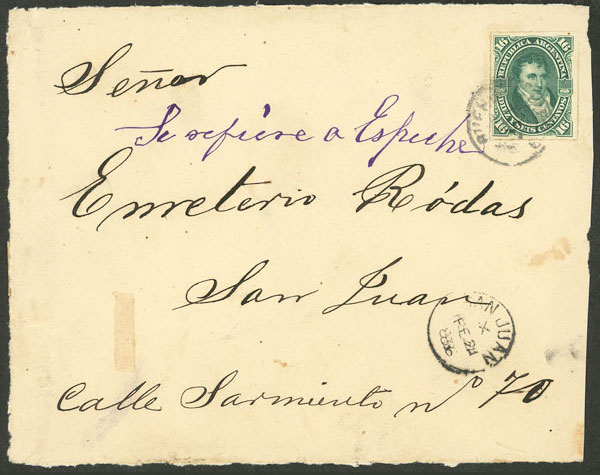 Señor
16 REPUBLICA ARGENTINA 16
16 DIEZ Y SEIS CENTAVOS 16
Se refiere a Espeche
Emeterio Ródas
San Juan
SAN JUAN
FE 24
Calle Sarmiento nº 70